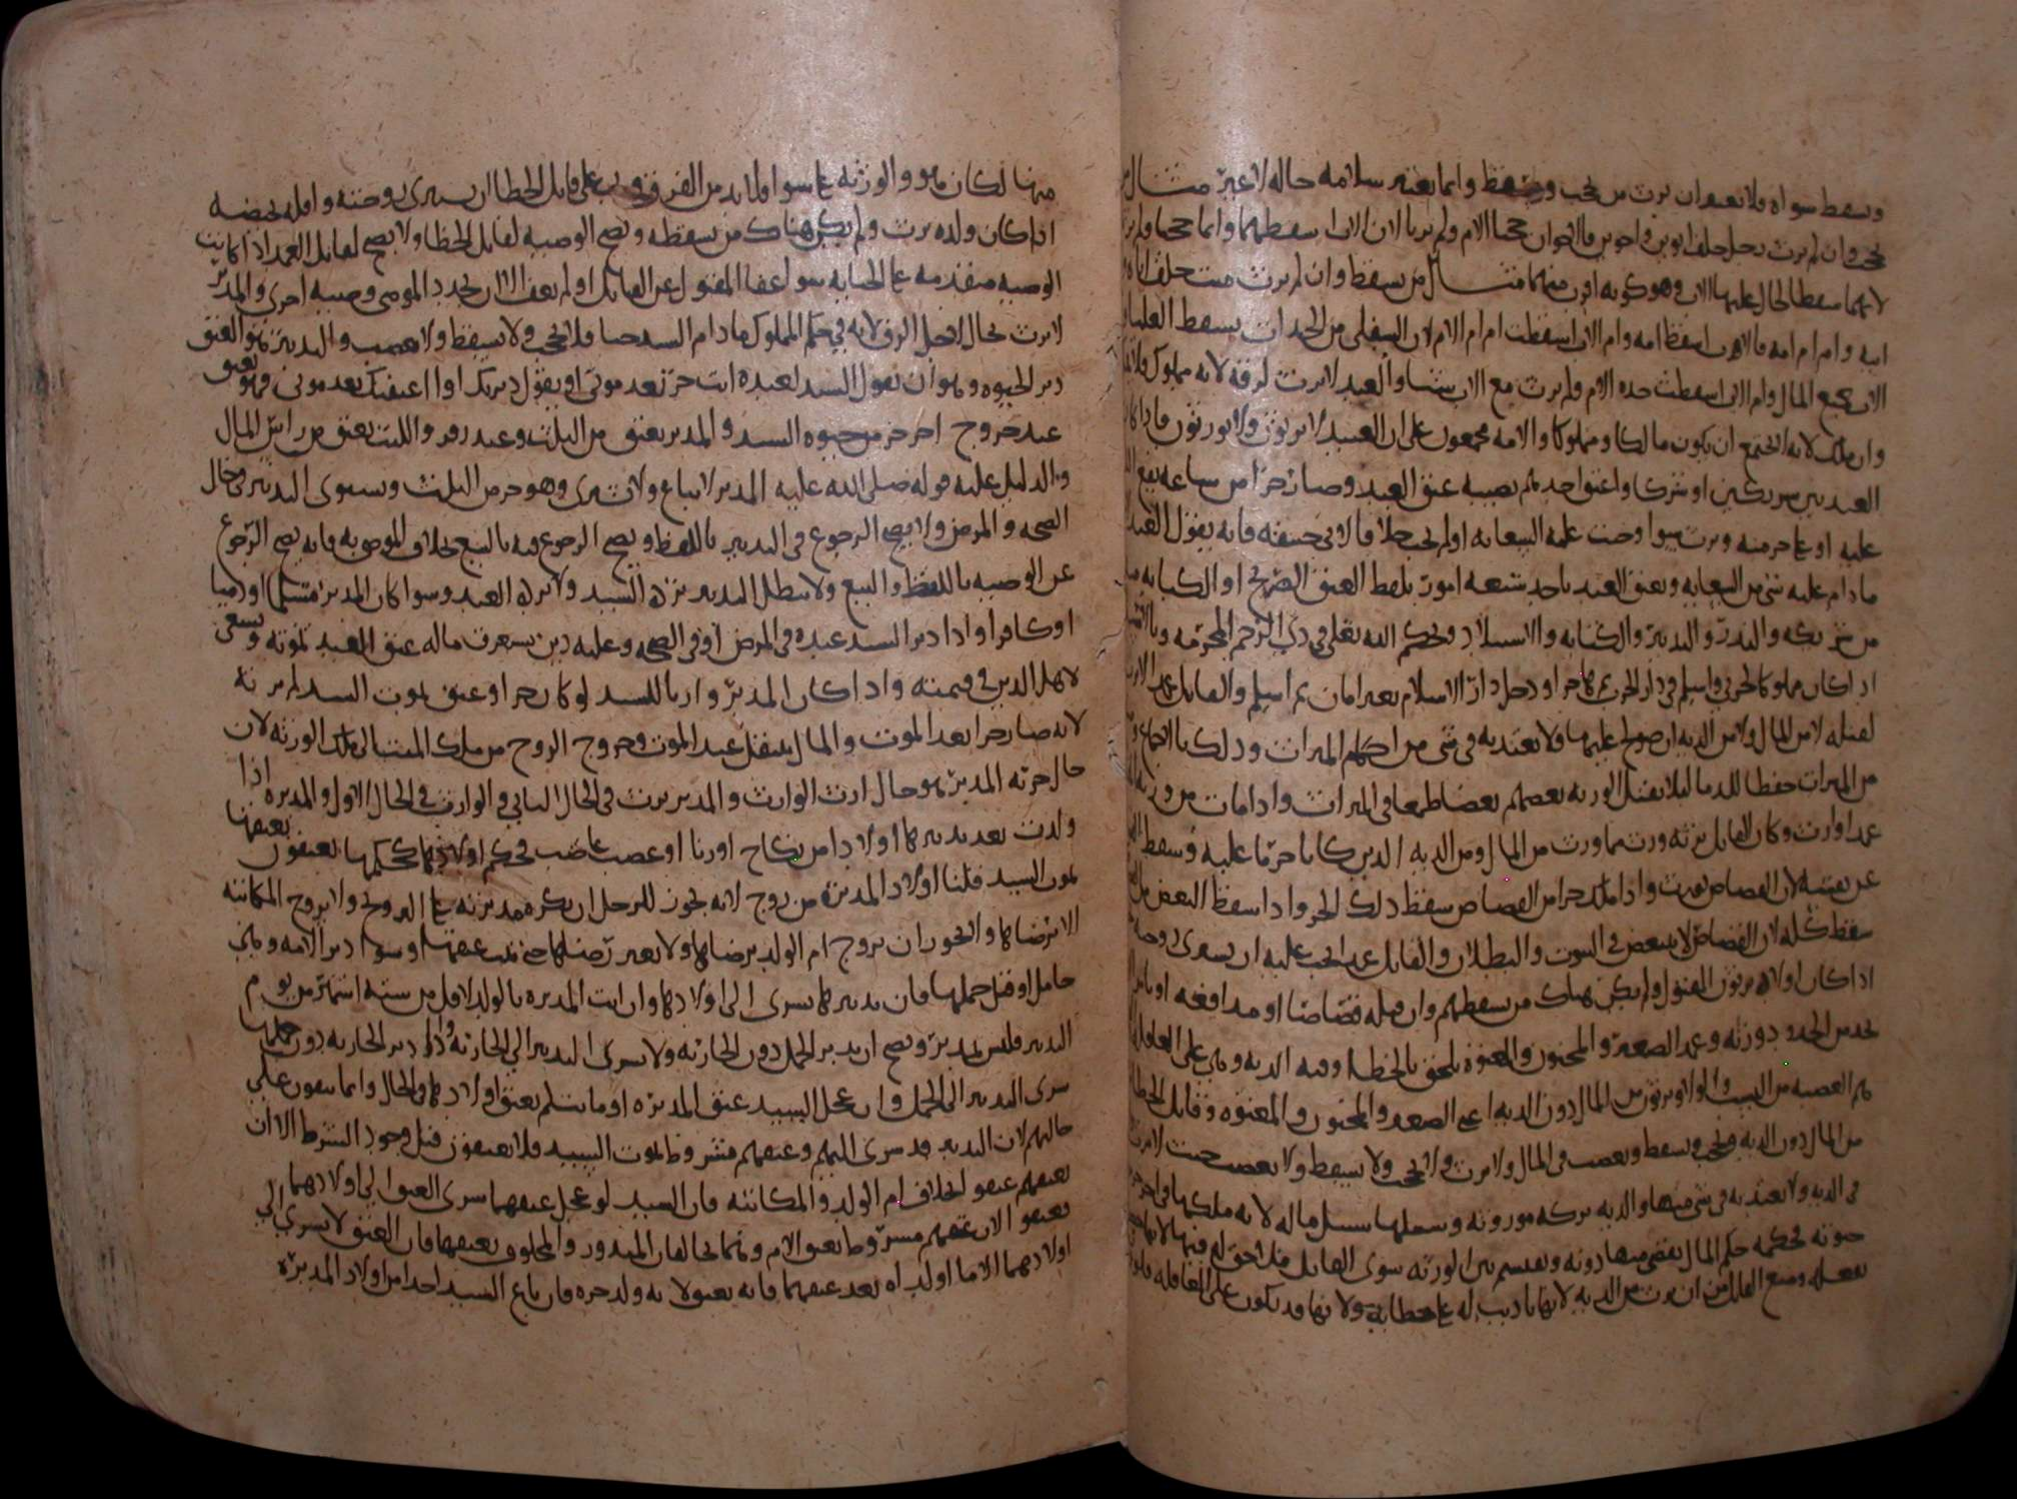 وسقط سواه فلا نعقد ان يرث من يحجب ويسقط وانما يعتبر سلامه حاله لا غير مثال
يحجب وان لم يرث رجل خلف ابوين واخوين فالاخوان حجبا الام ولم يرثا لان الاب اسقطهما وانما حجبا ولم يرثا
لانهما سقطا لحال عليهما الاب وهو كونه اقرب منهما مثال من يسقط وان لم يرث ميت خلف اباه
ابيه وام ام امه فالاب اسقط امه وام الاب اسقطت ام ام الام لان السفلى من الجدات يسقط العليا
الاب جميع المال وام الاب اسقطت جده الام ولم يرث مع الاب شيئا والعبد لا يرث لرقه لانه مملوك
وان ملك لانه لا يجتمع ان يكون مالكا ومملوكا والامه مجمعون على ان العبيد لا يرثون ولا يورثون فاذا كان
العبد بين شريكين او شركا واعتق احدهم نصيبه عتق العبد وصار حرا من ساعته
عليه او على حر منه ويرث سوا وجبت عليه السعايه او لم يجب خلافا لابي حنيفه فانه يقول العبد
ما دام عليه شي من السعايه ويعتق العبد باحد سبعه امور بلفظ العتق الصريح او الكنايه
من شريكه والنذر والتدبير والكتابه والاستيلاد وبحكم الله تعلى في ذي الرحم المحرمه
اذا كان مملوكا لحربي واسلم في دار الحرب ثم هاجر او دخل دار الاسلام بغير امان ثم اسلم والقاتل عمدا لا يرث
لقتله لا من المال ولا من الديه ان صولح عليها ولا يعتد به في شي من احكام الميراث وذلك بالاجماع
من الميراث حفظا للدما ليلا يقتل الورثه بعضهم بعضا طمعا في الميراث واذا مات من ورثه
عمدا وارث وكان القاتل يرثه ورث مما ورث من المال ومن الديه الذين كانا حرما عليه وسقط
عن نفسه لان القصاص يورث واذا ملك جزا من القصاص سقط ذلك الجزو واذا سقط البعض من
سقط كله لان القصاص لا يتبعض في الثبوت والبطلان والقاتل عمدا يجب عليه ان يسترى زوجته
اذا كان اولاده يرثون المقتول ولم يكن هناك من يسقطهم وان قتله قصاصا او مدافعه
بحد من الحدود ورثه وعمد الصغير والمجنون والمعتوه يلحق بالخطا وفيه الديه وهي على العاقله
ثم العصبه من النسب والولا ويرثون من المال دون الديه اعني الصغير والمجنون والمعتوه وقاتل الخطا
من المال دون الديه ويحجب ويسقط ويعصب في المال ولا يرث ولا يحجب ولا يسقط ولا يعصب حيث لا يرث
في الديه ولا يعتد به في شي منها والديه تركه موروثه وسبيلها سبيل ماله لانه ملكها في اخر
حيوته فحكمه حكم المال يقضى منها ديونه ويقسم بين الورثه سوى القاتل
بفعله ومنع القاتل من ان يرث من الديه لانها تاديب له على خطايه ولانها قد تكون على العاقله
منها لكان هو والورثه على سوا ولا بد من الفرق ويجب على قاتل الخطا ان يسترى زوجته وامله بحيضه
اذا كان ولده يرث ولم يكن هناك من يسقطه وتصح الوصيه لقاتل الخطا ولا يصح لقاتل العمد اذا كانت
الوصيه متقدمه على الجنايه سوا عفا المقتول عن القاتل او لم يعف الا ان يجدد الموصي وصيه اخرى والمدبر
لا يرث بحال لاجل الرق لانه في حكم المملوك ما دام السيد حيا فلا يحجب ولا يسقط ولا يعصب والتدبير هو العتق
دبر الحيوه وهو ان يقول السيد لعبده انت حر بعد موتي او يقول دبرتك او اعتقتك بعد موتي وهو يعتق
عند خروج اخر جزو من حيوه السيد والمدبر يعتق من الثلث وعند زفر والليث يعتق من راس المال
والدليل عليه قوله صلى الله عليه المدبر لا يباع ولا يشرى وهو حر من الثلث ويستوى التدبير في حال
الصحه والمرض ولا يصح الرجوع في التدبير باللفظ ويصح الرجوع فيه بالبيع بخلاف الموصى به فانه يصح الرجوع
عن الوصيه باللفظ والبيع ولا يبطل التدبير بردة السيد ولا بردة العبد وسوا كان المدبر مسلما او ذميا
او كافرا واذا دبر السيد عبده في المرض او في الصحه وعليه دين يستغرق ماله عتق العبد بموته ويسعى
لاهل الدين في قيمته واذا كان المدبر وارثا للسيد لو كان حرا وعتق بموت السيد لم يرثه
لانه صار حرا بعد الموت والمال ينتقل عند الموت وخروج الروح من ملك الميت الى ملك الورثه لان
حال حريه المدبر هو حال ارث الوارث والمدبر يرث في الحال الثاني والوارث في الحال الاول والمدبره اذا
ولدت بعد تدبيرها اولادا من نكاح او زنا او غصب غاصب فحكم اولادها حكمها يعتقون بعتقها
بموت السيد قلنا اولاد المدبره من زوج لانه يجوز للرجل ان يكره مدبرته على الزوج ولا يزوج المكاتبه
الا برضاها ولا يجوز ان يزوج ام الولد برضاها ولا بغير رضاها حتى يبت عتقها وسوا دبر الامه وهي
حامل او قبل حملها فان تدبيرها يسرى الى اولادها وان اتت المدبره بالولد لاقل من سته اشهر من يوم
التدبير فليس بمدبر ويصح ان يدبر الحمل دون الجاريه ولا يسرى التدبير الى الجاريه واذا دبر الجاريه دون حملها
سرى التدبير الى الحمل وان عجل السيد عتق المدبره او ما تسلم يعتق اولادها في الحال وانما يبقون على
حالهم لان التدبير قد سرى اليهم وعتقهم مشروط بموت السيد فلا يعتقون قبل وجود الشرط الا ان
يعتقهم عتقوا بخلاف ام الولد والمكاتبه فان السيد لو عجل عتقهما سرى العتق الى اولادهما
يعتقوا لان عتقهم مشروط بعتق الام وهما يخالفان المنذور والمحلوف بعتقها فان العتق لا يسرى الى
اولادهما الا ما اولداه بعد عتقهما فانه يعتق لانه ولد حره فان باع السيد احدا من اولاد المدبره